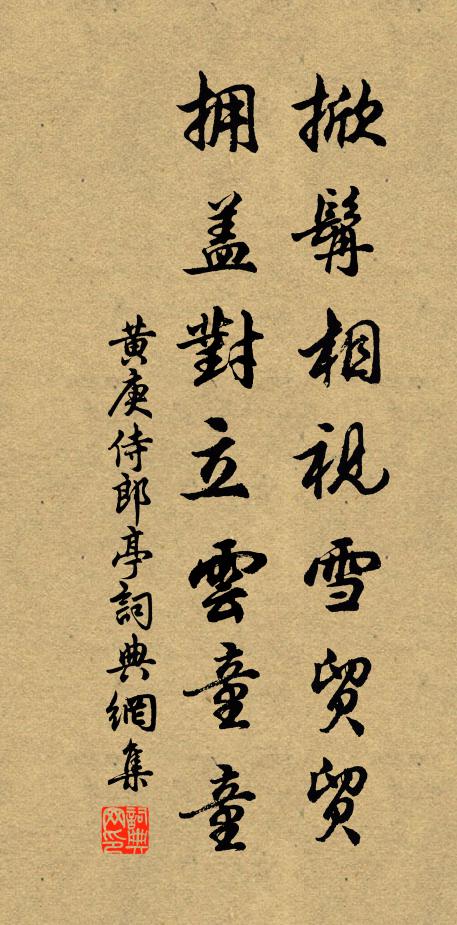 掀髯相視雪貿貿
拥盖對立雲童童
黄庚侍郎亭詞典網集
詞典網印